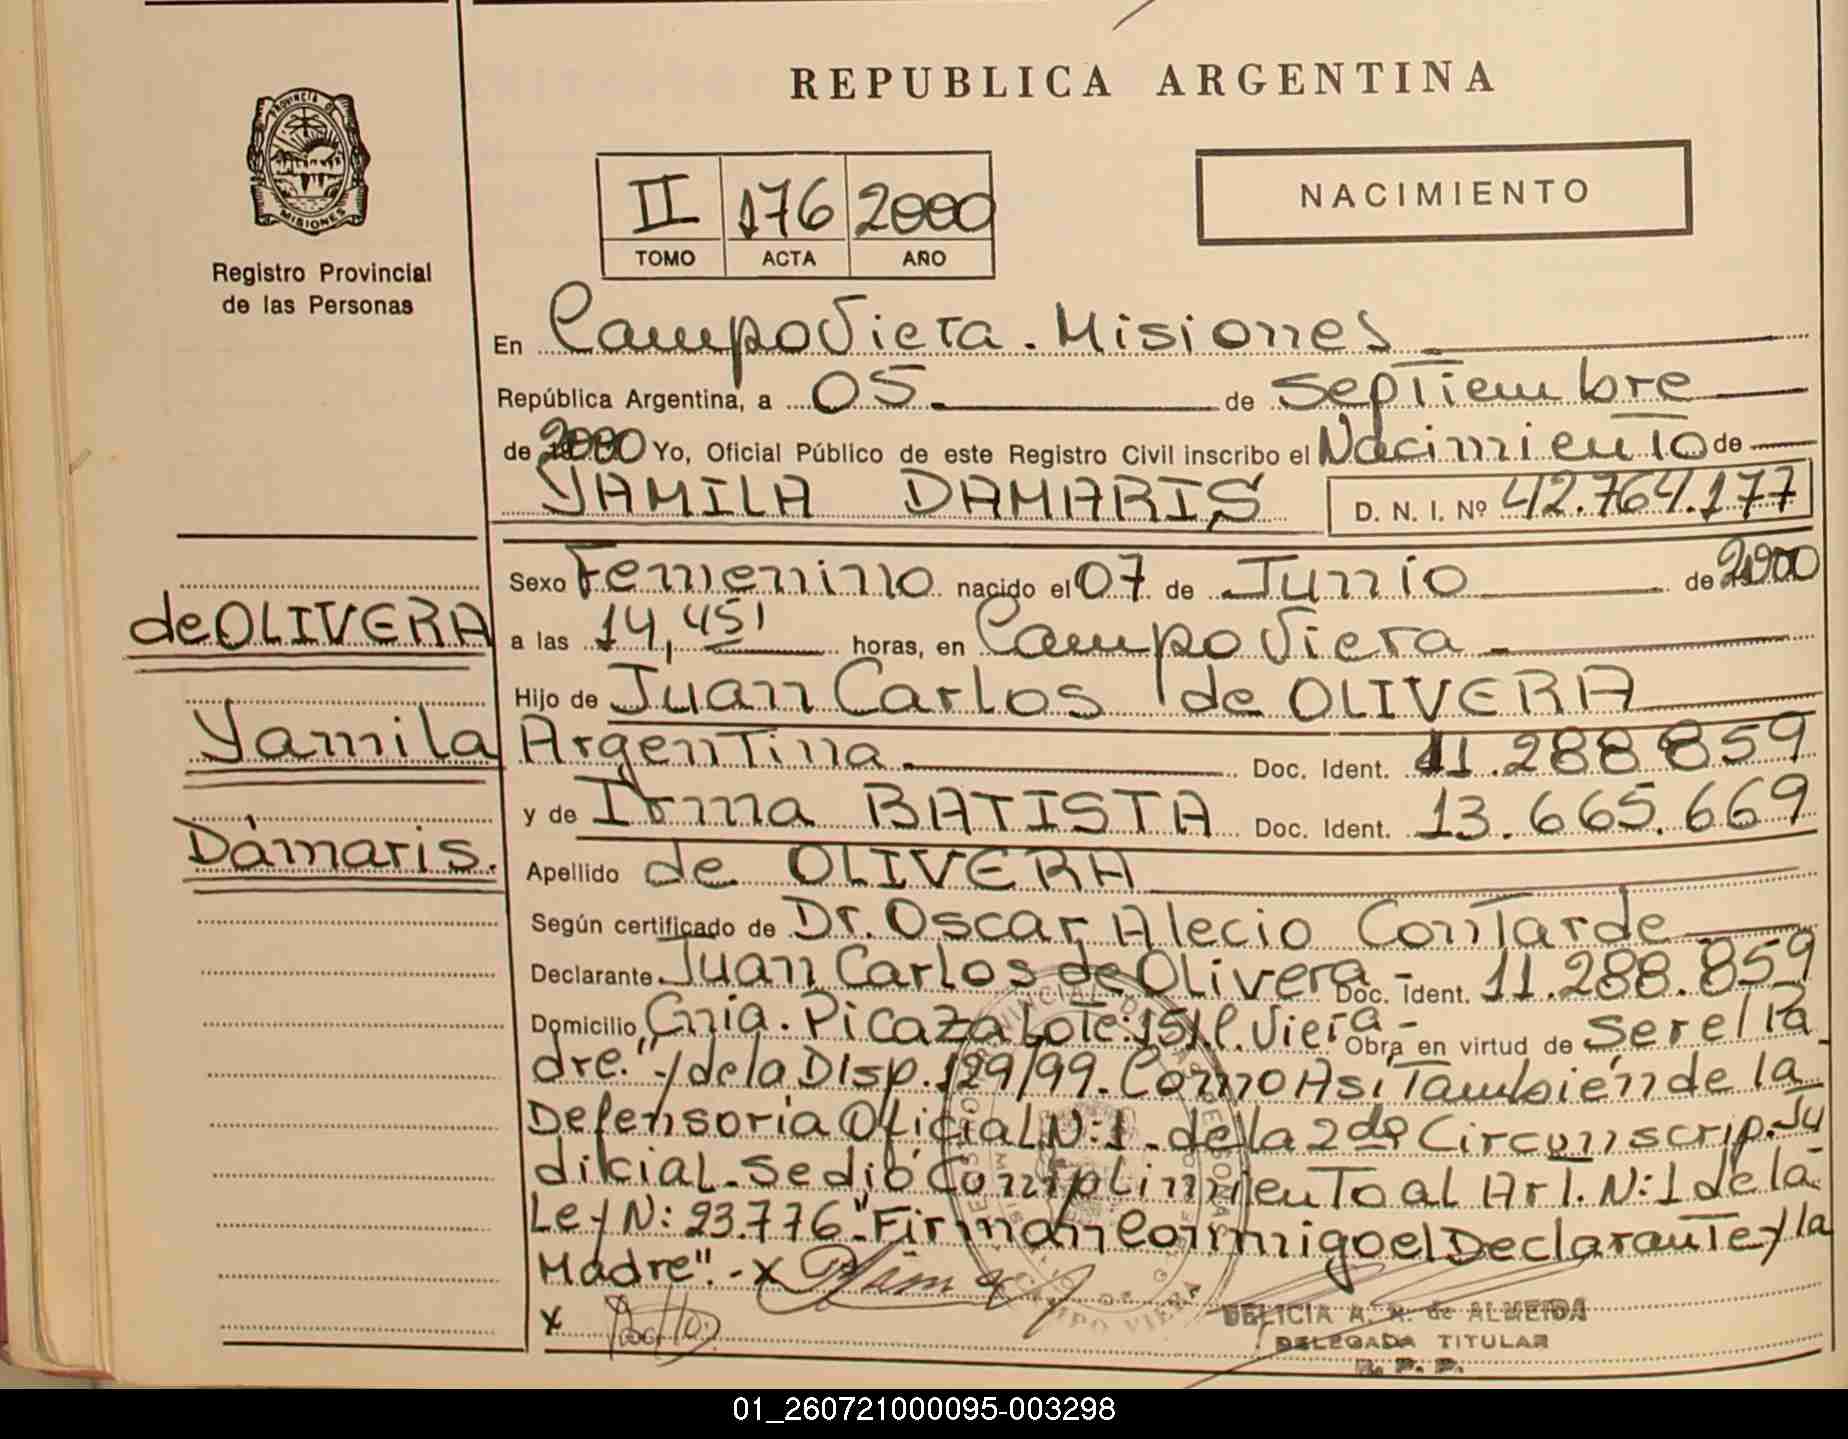 REPUBLICA ARGENTINA
PROVINCIA DE
MISIONES
Registro Provincial
de las Personas
II 176 2000
TOMO ACTA AÑO
NACIMIENTO
En Campo Viera - Misiones
República Argentina, a 05 de Septiembre
de 2000 Yo, Oficial Público de este Registro Civil inscribo el Nacimiento de
YAMILA DAMARIS D. N. I. Nº 42.764.177
de OLIVERA
Yamila
Dámaris.
Sexo Femenino nacido el 07 de Junio de 2000
a las 14,45' horas, en Campo Viera
Hijo de Juan Carlos de OLIVERA
Argentina Doc. Ident. 11.288.859
y de Irma BATISTA Doc. Ident. 13.665.669
Apellido de OLIVERA
Según certificado de Dr. Oscar Alecio Contarde
Declarante Juan Carlos de Olivera - Doc. Ident. 11.288.859
Domicilio Cnia. Picaza Lote: 151 C. Viera - Obra en virtud de ser el Pa
dre." y de la Disp. 129/99. Como Así También de la
Defensoría Oficial N: 1 - de la 2da Circunscrip. Ju
dicial - Se dió Cumplimiento al Art. N: 1 de la
Ley N: 23.776 "Firman Conmigo el Declarante y la
Madre". - x
x
DELICIA A. R. de ALMEIDA
DELEGADA TITULAR
R. P. P.
01_260721000095-003298